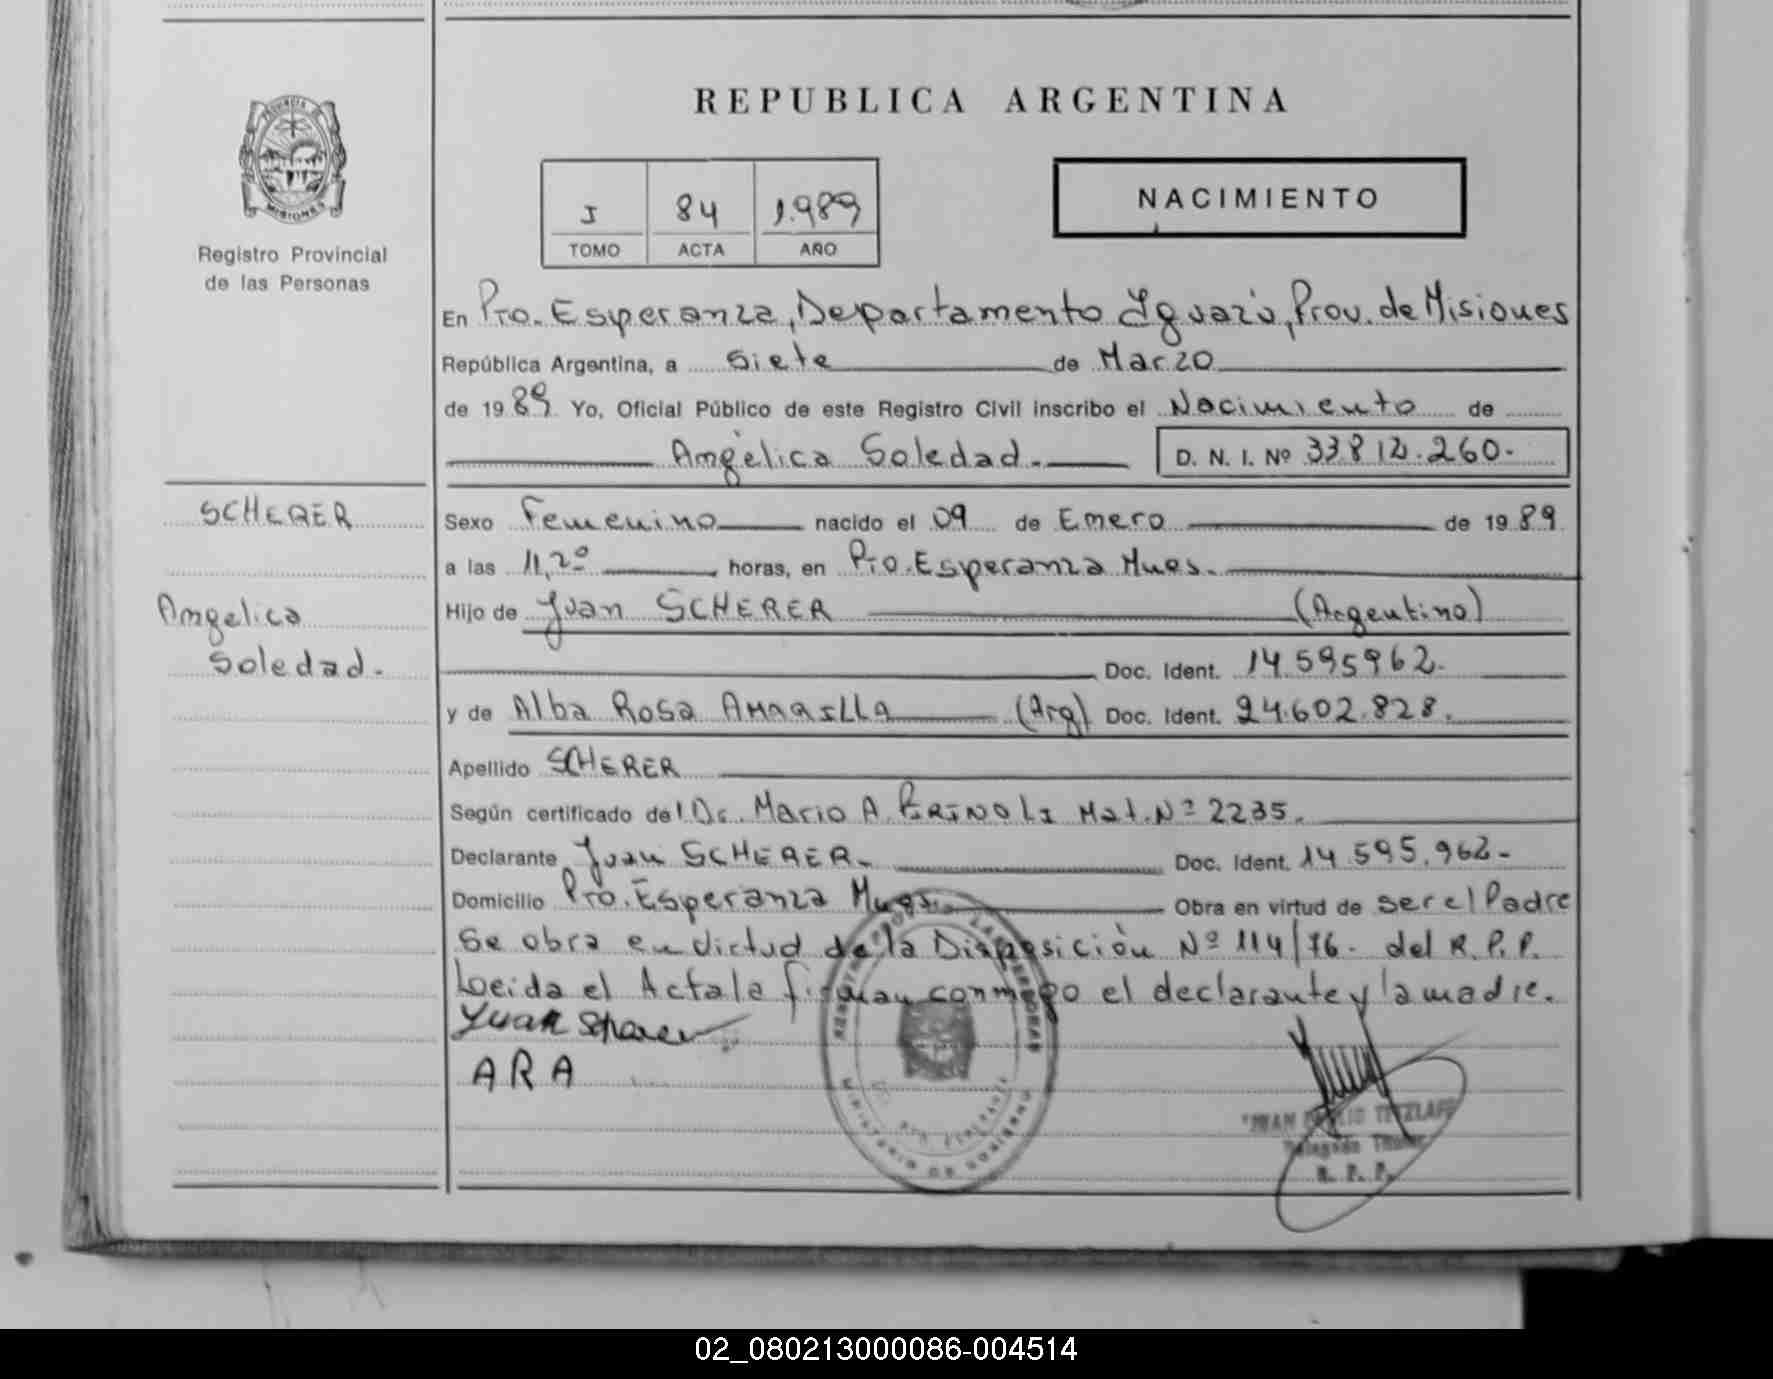 REPUBLICA ARGENTINA
PROVINCIA
MISIONES
Registro Provincial
de las Personas
I 84 1.989
TOMO ACTA AÑO
NACIMIENTO
En Pto. Esperanza, Departamento Iguazú, Prov. de Misiones
República Argentina, a siete de Marzo
de 1989 Yo, Oficial Público de este Registro Civil inscribo el Nacimiento de
Angélica Soledad.- D. N. I. Nº 33.812.260.-
SCHERER
Angelica
Soledad.-
Sexo Femenino nacido el 09 de Enero de 1989
a las 11,20 horas, en Pto. Esperanza Mnes.-
Hijo de Juan SCHERER (Argentino)
Doc. Ident. 14.595962.-
y de Alba Rosa AMARILLA (Arg) Doc. Ident. 24.602.828.
Apellido SCHERER
Según certificado del Dr. Mario A. Mat. Nº 2235.
Declarante Juan SCHERER.- Doc. Ident. 14.595.962-
Domicilio Pto. Esperanza Mnes. Obra en virtud de ser el Padre
Se obra en virtud de la Disposición Nº 114/76. del R.P.P.
Leida el Acta la firman conmigo el declarante y la madre.
Juan
ARA
MINISTERIO DE GOBIERNO
JUAN TETZLAFF
Delegado Titular
R. P. P.
02_080213000086-004514